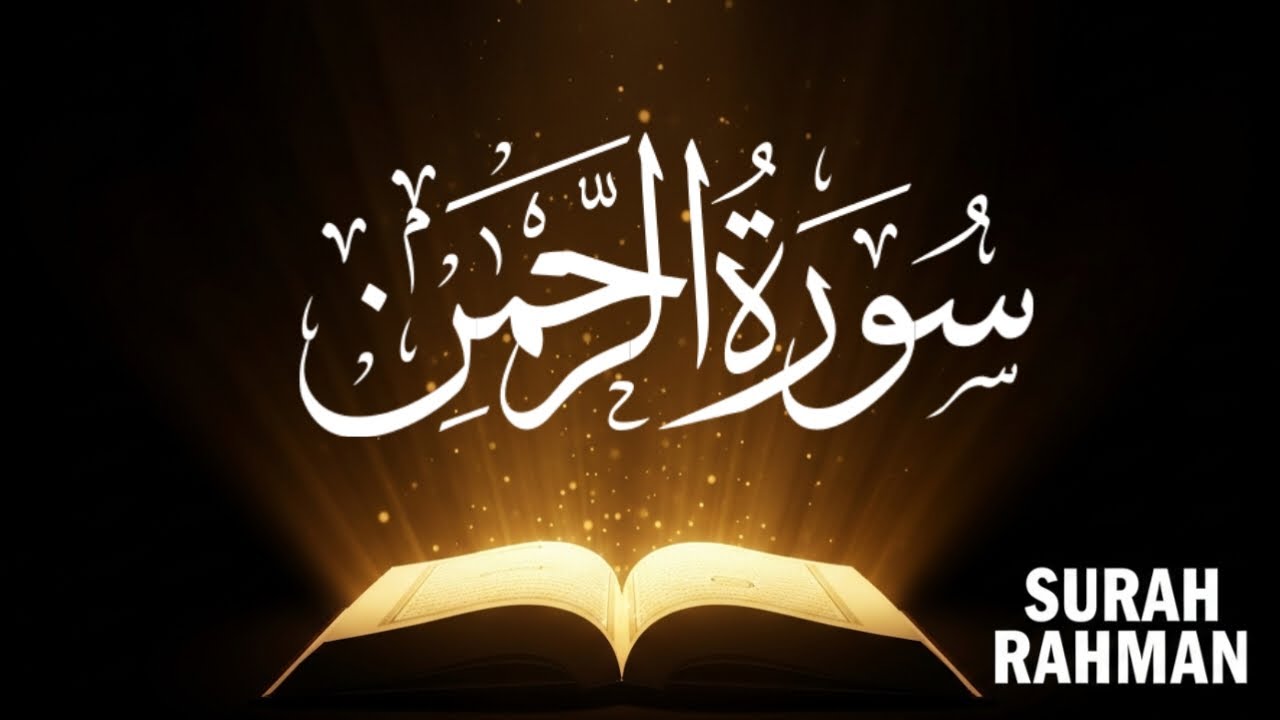 سُورَةُ الرَّحْمٰنِ
SURAH
RAHMAN